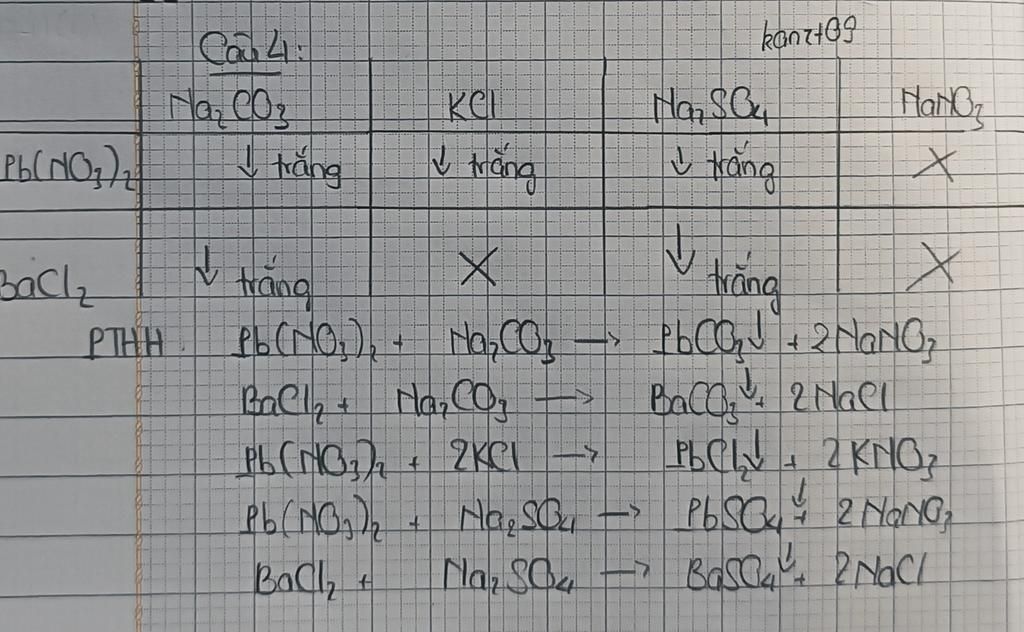 Câu 4:
kanzt09
Na₂CO₃ KCl Na₂SO₄ NaNO₃
Pb(NO₃)₂ ↓ trắng ↓ trắng ↓ trắng X
BaCl₂ ↓ trắng X ↓ trắng X
PTHH: Pb(NO₃)₂ + Na₂CO₃ → PbCO₃↓ + 2NaNO₃
BaCl₂ + Na₂CO₃ → BaCO₃↓ + 2NaCl
Pb(NO₃)₂ + 2KCl → PbCl₂↓ + 2KNO₃
Pb(NO₃)₂ + Na₂SO₄ → PbSO₄↓ + 2NaNO₃
BaCl₂ + Na₂SO₄ → BaSO₄↓ + 2NaCl